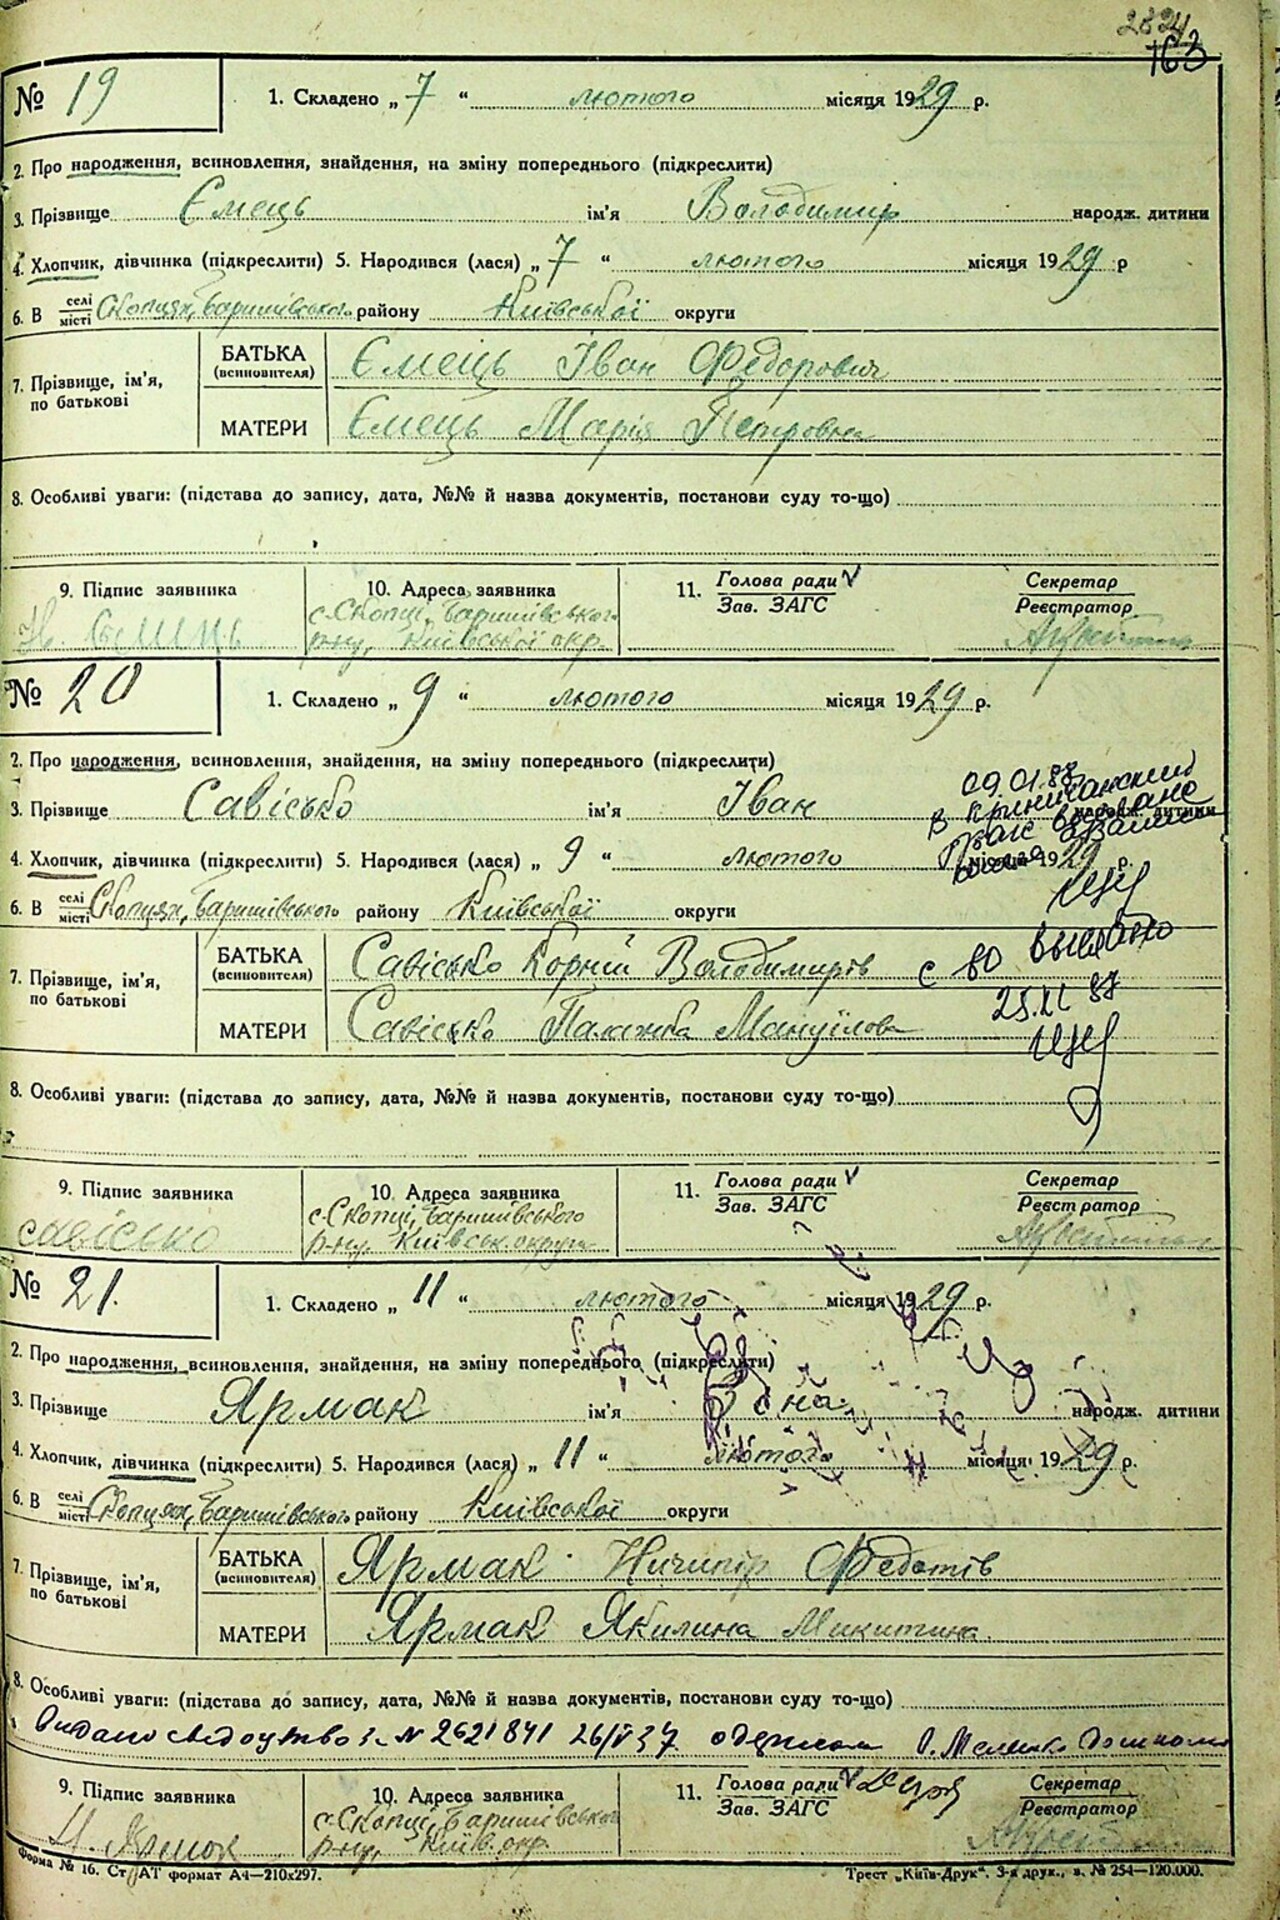 163
№ 19
1. Складено „ 7 “ лютого місяця 1929 р.
2. Про народження, всиновлення, знайдення, на зміну попереднього (підкреслити)
3. Прізвище Ємець ім'я Володимир народж. дитини
4. Хлопчик, дівчинка (підкреслити) 5. Народився (лася) „ 7 “ лютого місяця 1929 р
6. В селі місті Скопцях, Баришівського району Київської округи
7. Прізвище, ім'я, по батькові
БАТЬКА (всиновителя) Ємець Іван Федорович
МАТЕРИ Ємець Марія Петровна
8. Особливі уваги: (підстава до запису, дата, №№ й назва документів, постанови суду то-що)
9. Підпис заявника
10. Адреса заявника
11. Голова ради Зав. ЗАГС
Секретар Реєстратор
с. Скопці, Баришівського
р-ну, Київської окр.
№ 20
1. Складено „ 9 “ лютого місяця 1929 р.
2. Про народження, всиновлення, знайдення, на зміну попереднього (підкреслити)
09.01.87
3. Прізвище Савісько ім'я Іван народж. дитини
4. Хлопчик, дівчинка (підкреслити) 5. Народився (лася) „ 9 “ лютого місяця 1929 р.
6. В селі місті Скопцях, Баришівського району Київської округи
7. Прізвище, ім'я, по батькові
БАТЬКА (всиновителя) Савісько Корній Володимирів
с во выслано
МАТЕРИ Савісько Пелажка Мануїлова
8. Особливі уваги: (підстава до запису, дата, №№ й назва документів, постанови суду то-що)
9. Підпис заявника
10. Адреса заявника
11. Голова ради Зав. ЗАГС
Секретар Реєстратор
Савісько
с. Скопці, Баришівського
р-ну, Київськ. округи
№ 21.
1. Складено „ 11 “ лютого місяця 1929 р.
2. Про народження, всиновлення, знайдення, на зміну попереднього (підкреслити)
3. Прізвище Ярмак ім'я народж. дитини
4. Хлопчик, дівчинка (підкреслити) 5. Народився (лася) „ 11 “ лютого місяця 1929 р.
6. В селі місті Скопцях, Баришівського району Київської округи
7. Прізвище, ім'я, по батькові
БАТЬКА (всиновителя) Ярмак Ничипір Федотів
МАТЕРИ Ярмак Якилина Микитина
8. Особливі уваги: (підстава до запису, дата, №№ й назва документів, постанови суду то-що)
Видано свідоцтво за N 2621841 26/V 37
9. Підпис заявника
10. Адреса заявника
11. Голова ради Зав. ЗАГС
Секретар Реєстратор
с. Скопці, Баришівського
р-ну, Київ. окр.
Форма № 16. Ст АТ формат А4—210х297.
Трест „Київ-Друк“. 3-я друк., з. № 254—120.000.